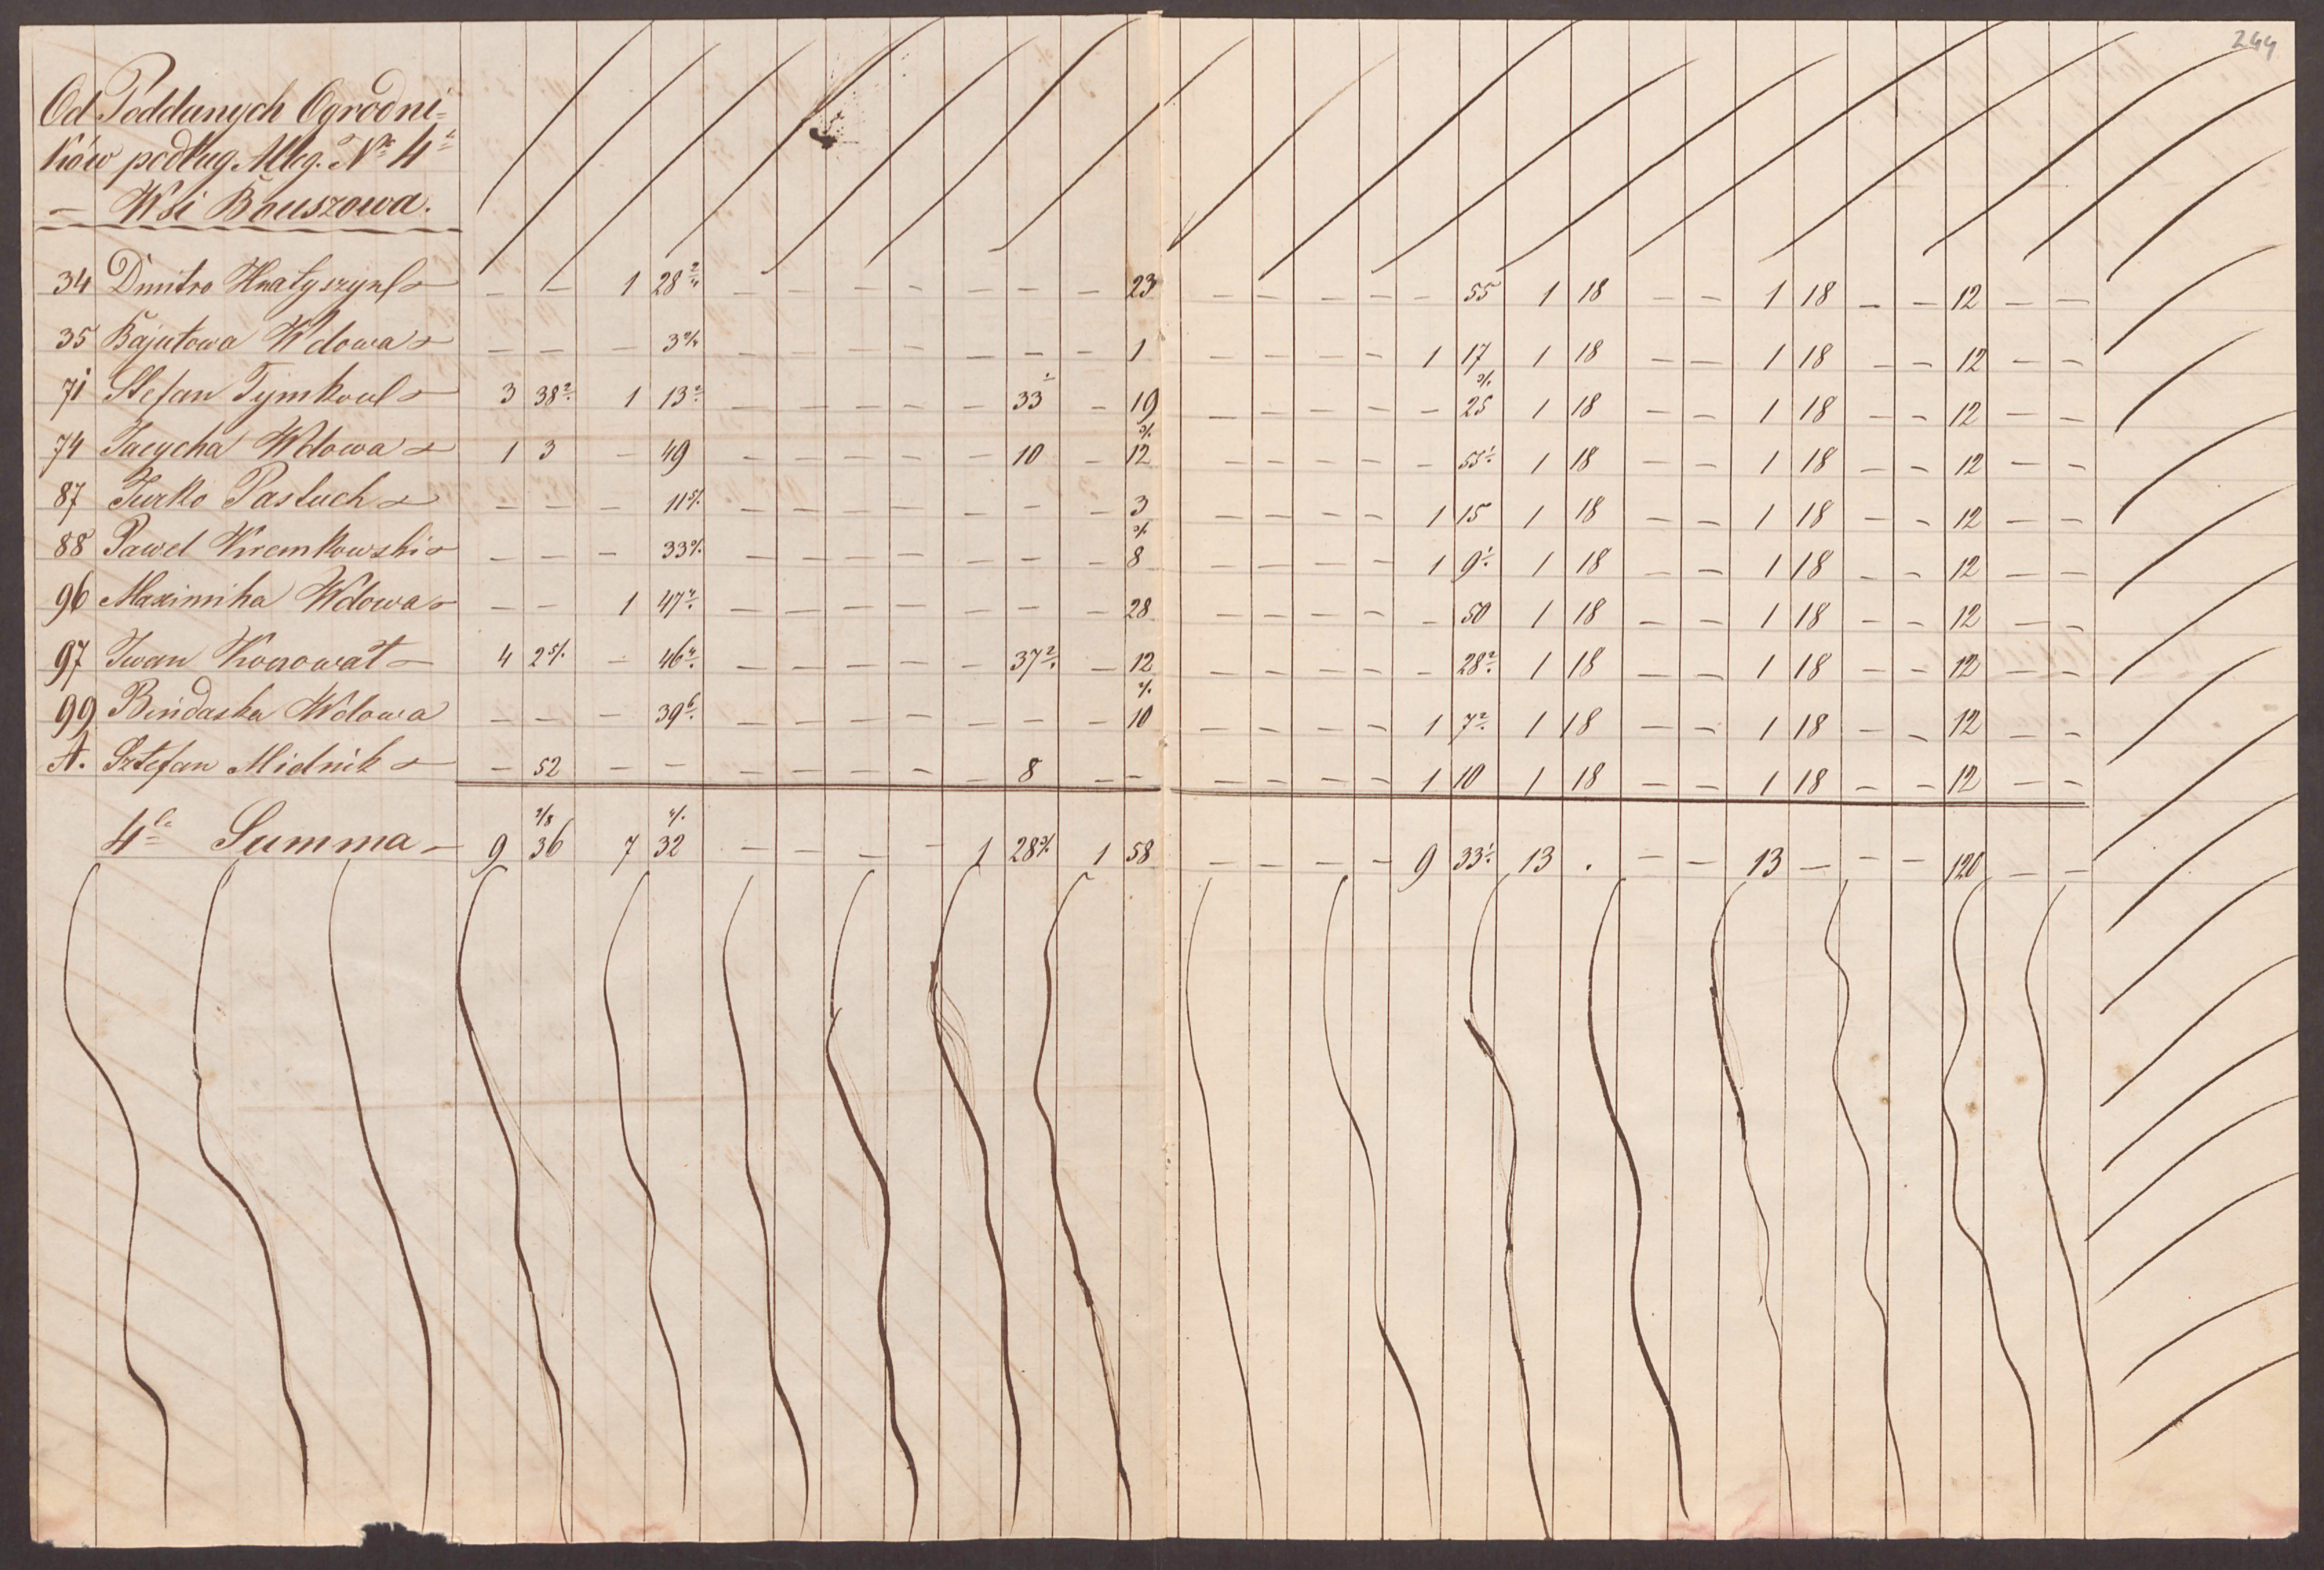 244
Od Poddanych Ogrodni=
ków podług Alleg. Nro 4
— Wsi Bouszowa.
34 Dmitro Hnatyszyn — — 1 28 2/4 — — — — — — — 23 — — — — — 55 1 18 — — 1 18 — — 12 — —
35 Bajutowa Wdowa — — — 3 — — — — — — — 1 — — — — 1 17 1 18 — — 1 18 — — 12 — —
71 Stefan Tymkow 3 38 2 1 13 2 — — — — — 33 — 19 — — — — — 25 1 18 — — 1 18 — — 12 — —
74 Jacycha Wdowa 1 3 — 49 — — — — — 10 — 12 — — — — — 55 1 18 — — 1 18 — — 12 — —
87 Jurko Pastuch — — — 11 — — — — — — — 3 — — — — 1 15 1 18 — — 1 18 — — 12 — —
88 Pawel Kremkowski — — — 33 — — — — — — — 8 — — — — 1 9 1 18 — — 1 18 — — 12 — —
96 Maximiha Wdowa — — 1 47 — — — — — — — 28 — — — — — 50 1 18 — — 1 18 — — 12 — —
97 Iwan 4 2 — 46 — — — — — 37 2 — 12 — — — — — 28 2 1 18 — — 1 18 — — 12 — —
99 Bindaska Wdowa — — — 39 6 — — — — — — — 10 — — — — 1 7 2 1 18 — — 1 18 — — 12 — —
A. Sztefan Midnik — 52 — — — — — — — 8 — — — — — — 1 10 1 18 — — 1 18 — — 12 — —
4 Summa — 9 36 7 32 — — — — 1 28 1 58 — — — — 9 33 13 . — — 13 — — — 120 — —